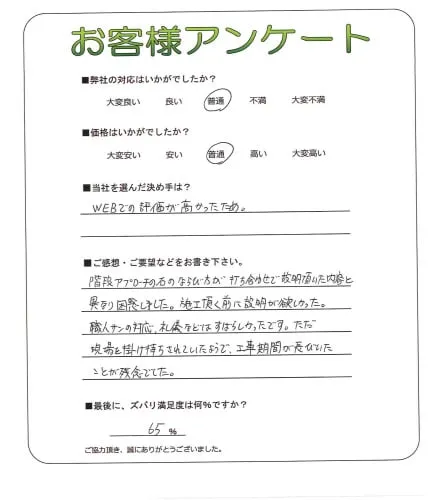 お客様アンケート
■弊社の対応はいかがでしたか?
大変良い 良い 普通 不満 大変不満
■価格はいかがでしたか?
大変安い 安い 普通 高い 大変高い
■当社を選んだ決め手は?
WEBでの評価が高かったため。
■ご感想・ご要望などをお書き下さい。
階段アプローチの石のならび方が打ち合わせで説明頂いた内容と
異なり困惑しました。施工頂く前に説明が欲しかった。
職人サンの対応、礼儀などはすばらしかったです。ただ
現場を掛け持ちされていたようで、工事期間が長びいた
ことが残念でした。
■最後に、ズバリ満足度は何%ですか?
65 %
ご協力頂き、誠にありがとうございました。